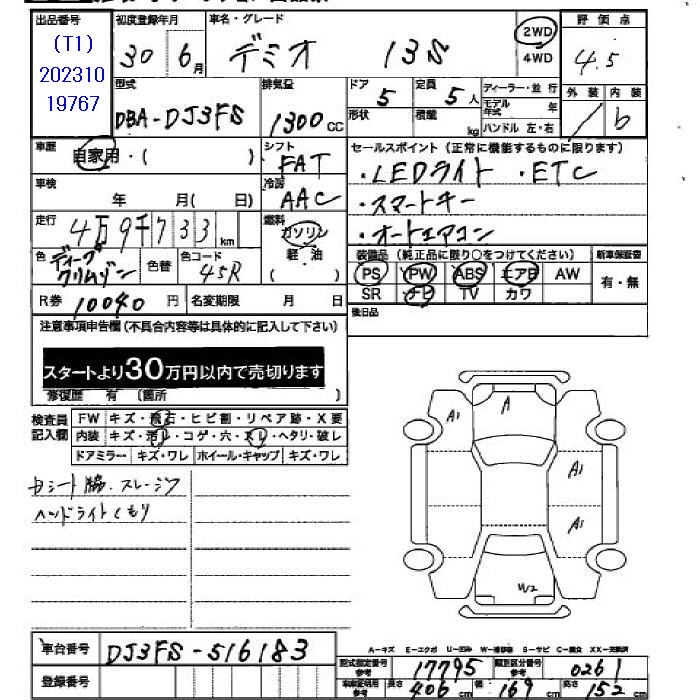 出品番号 初度登録年月 車名・グレード 評価点
(T1) 30年 6月 デミオ 13S 2WD 4.5
202310 4WD
19767 型式 排気量 ドア 定員 ディーラー・並行 外装 内装
DBA-DJ3FS 1300cc 5 5人 モデル年式 年 b
形状 積載 kg ハンドル 左・右
車歴 自家用・( ) シフト FAT セールスポイント(正常に機能するものに限ります)
・LEDライト ・ETC
車検 年 月( 日) 冷房 AAC ・スマートキー
走行 4万9千733km 燃料 ガソリン ・オートエアコン
色 ディープクリムゾン 色替 色コード 45R 軽・油 装備品(純正品に限り○をつけてください) 新車保証書
PS PW ABS エアB AW 有・無
R券 10040円 名変期限 月 日 SR ナビ TV カワ
注意事項申告欄(不具合内容等は具体的に記入して下さい) 後日品
スタートより30万円以内で売切ります
修復歴 有 (箇所 )
検査員記入欄 FW キズ・飛石・ヒビ割・リペア跡・X要
内装 キズ・汚レ・コゲ・穴・スレ・ヘタリ・破レ
ドアミラー キズ・ワレ ホイール・キャップ キズ・ワレ
ヘッドライトくもり
A1 A
A1
A1
W2
車台番号 DJ3FS-516183
A-キズ E-エクボ U-凹み W-補修跡 S-サビ C-腐食 XX-交換済
型式指定番号 参考 17795 類別区分番号 参考 0261
登録番号 車庫証明用 参考 長さ 406cm 幅 169cm 高さ 152cm